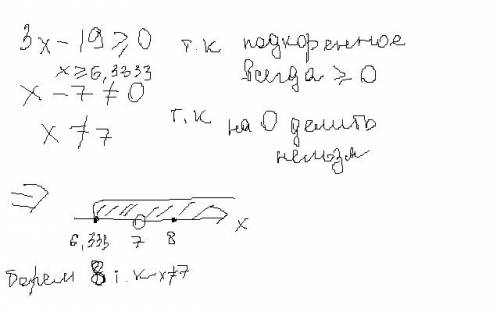 3x - 19 ≥ 0 т.к подкоренное
x ≥ 6,3333 всегда ≥ 0
x - 7 ≠ 0
x ≠ 7 т.к на 0 делить
нельзя
⇒
6,333 7 8 x
берем 8 т.к x≠7